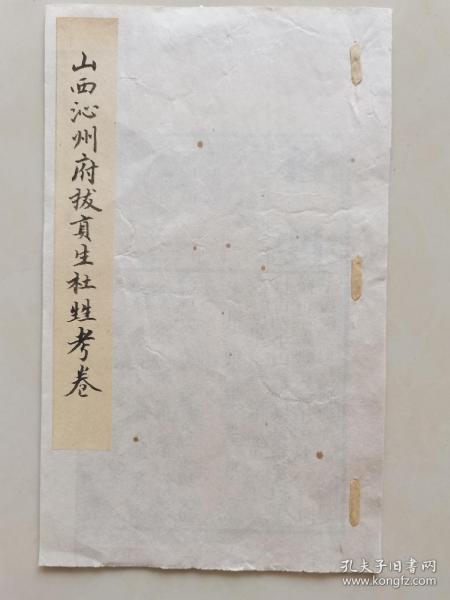 山西沁州府拔贡生杜甡考卷
孔夫子旧书网
www.kongfz.com